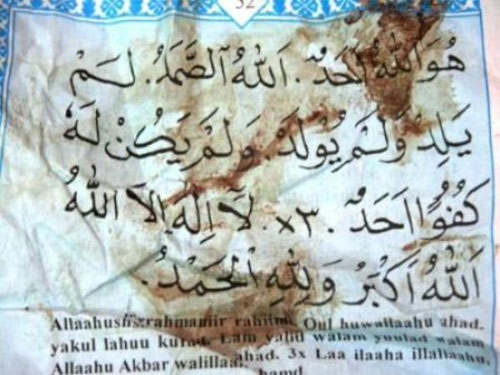 52
هُوَ اللّٰهُ اَحَدٌ. اَللّٰهُ الصَّمَدُ. لَمْ
يَلِدْ وَلَمْ يُوْلَدْ. وَلَمْ يَكُنْ لَهُ
كُفُوًا اَحَدٌ. ×٣. لَآ اِلٰهَ اِلَّا اللّٰهُ
اَللّٰهُ اَكْبَرُ وَلِلّٰهِ الْحَمْدُ.
Allaahu rahmaniir rahiim. Qul huwallaahu ahad.
yakul lahuu Lam yalid walam yuulad walam
Allaahu Akbar walillaa ahad. 3x Laa ilaaha illallaahu,
hamd